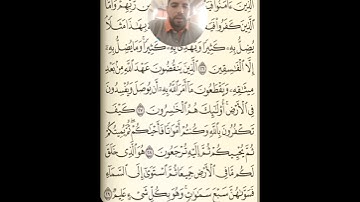 الَّذِينَ ءَامَنُوا۟ فَيَ مِن رَّبِّهِمْ وَأَمَّا
الَّذِينَ كَفَرُوا۟ فَيَ بِهَٰذَا مَثَلًا
يُضِلُّ بِهِۦ كَثِيرًا وَيَهْدِى بِهِۦ كَثِيرًا وَمَا يُضِلُّ بِهِۦٓ
إِلَّا ٱلْفَٰسِقِينَ ٢٦ ٱلَّذِينَ يَنقُضُونَ عَهْدَ ٱللَّهِ مِنۢ بَعْدِ
مِيثَٰقِهِۦ وَيَقْطَعُونَ مَآ أَمَرَ ٱللَّهُ بِهِۦٓ أَن يُوصَلَ وَيُفْسِدُونَ
فِى ٱلْأَرْضِ أُو۟لَٰٓئِكَ هُمُ ٱلْخَٰسِرُونَ ٢٧ كَيْفَ
تَكْفُرُونَ بِٱللَّهِ وَكُنتُمْ أَمْوَٰتًا فَأَحْيَٰكُمْ ثُمَّ يُمِيتُكُمْ
ثُمَّ يُحْيِيكُمْ ثُمَّ إِلَيْهِ تُرْجَعُونَ ٢٨ هُوَ ٱلَّذِى خَلَقَ
لَكُم مَّا فِى ٱلْأَرْضِ جَمِيعًا ثُمَّ ٱسْتَوَىٰٓ إِلَى ٱلسَّمَآءِ
فَسَوَّىٰهُنَّ سَبْعَ سَمَٰوَٰتٍ وَهُوَ بِكُلِّ شَىْءٍ عَلِيمٌ ٢٩